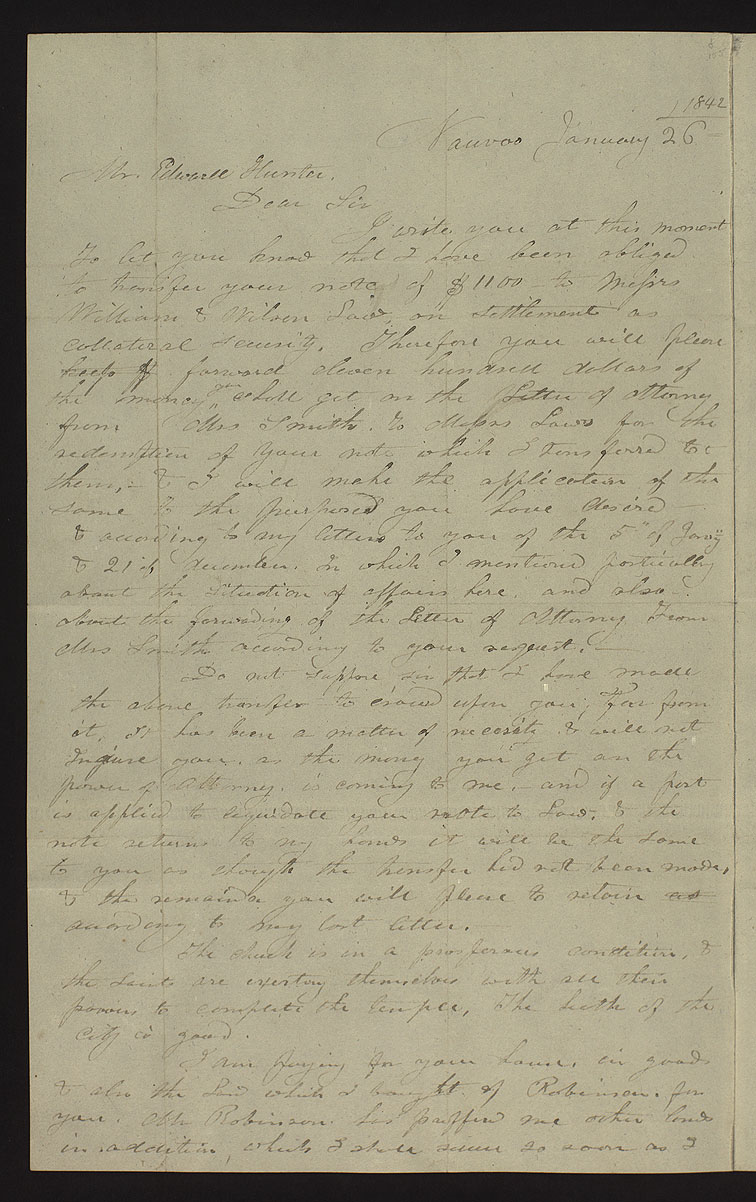 1842
Nauvoo January 26
Mr. Edward Hunter.
Dear Sir
I write you at this moment
To let you know that I have been obliged
to transfer your note of $1100 - to Messrs
William & Wilson Law, on settlement as
collateral security. Therefore you will please
keep forward eleven hundred dollars of
the money you shall get on the Letter of attorney
from Mrs Smith. to Messrs Laws for the
redemption of your note which I transferred to
them, - & I will make the application of the
same to the purposes you have desired -
& according to my letters to you of the 5th of Jany
& 21 of december. in which I mentioned particularly
about the situation of affairs here. and also -
about the forwarding of the Letter of Attorney From
Mrs Smith according to your request. -
Do not suppose sir that I have made
the above transfer to crowd upon you; Far from
it, It has been a matter of necessity & will not
Injure you. as the money you get on the
power of Attorney. is coming to me. - and if a part
is applied to liquidate your note to Law. & the
note returns to my hands it will be the same
to you as though the transfer had not been made,
& the remainder you will please to retain as
according to my last letter.
The church is in a prosperous condition, &
the saints are exerting themselves with all their
powers to complete the temple, The health of the
city is good.
I am paying for your house. in goods
& also the Land which I bought of Robinson. for
you. Mr Robinson has proffered me other lands
in addition, which I shall secure so soon as I